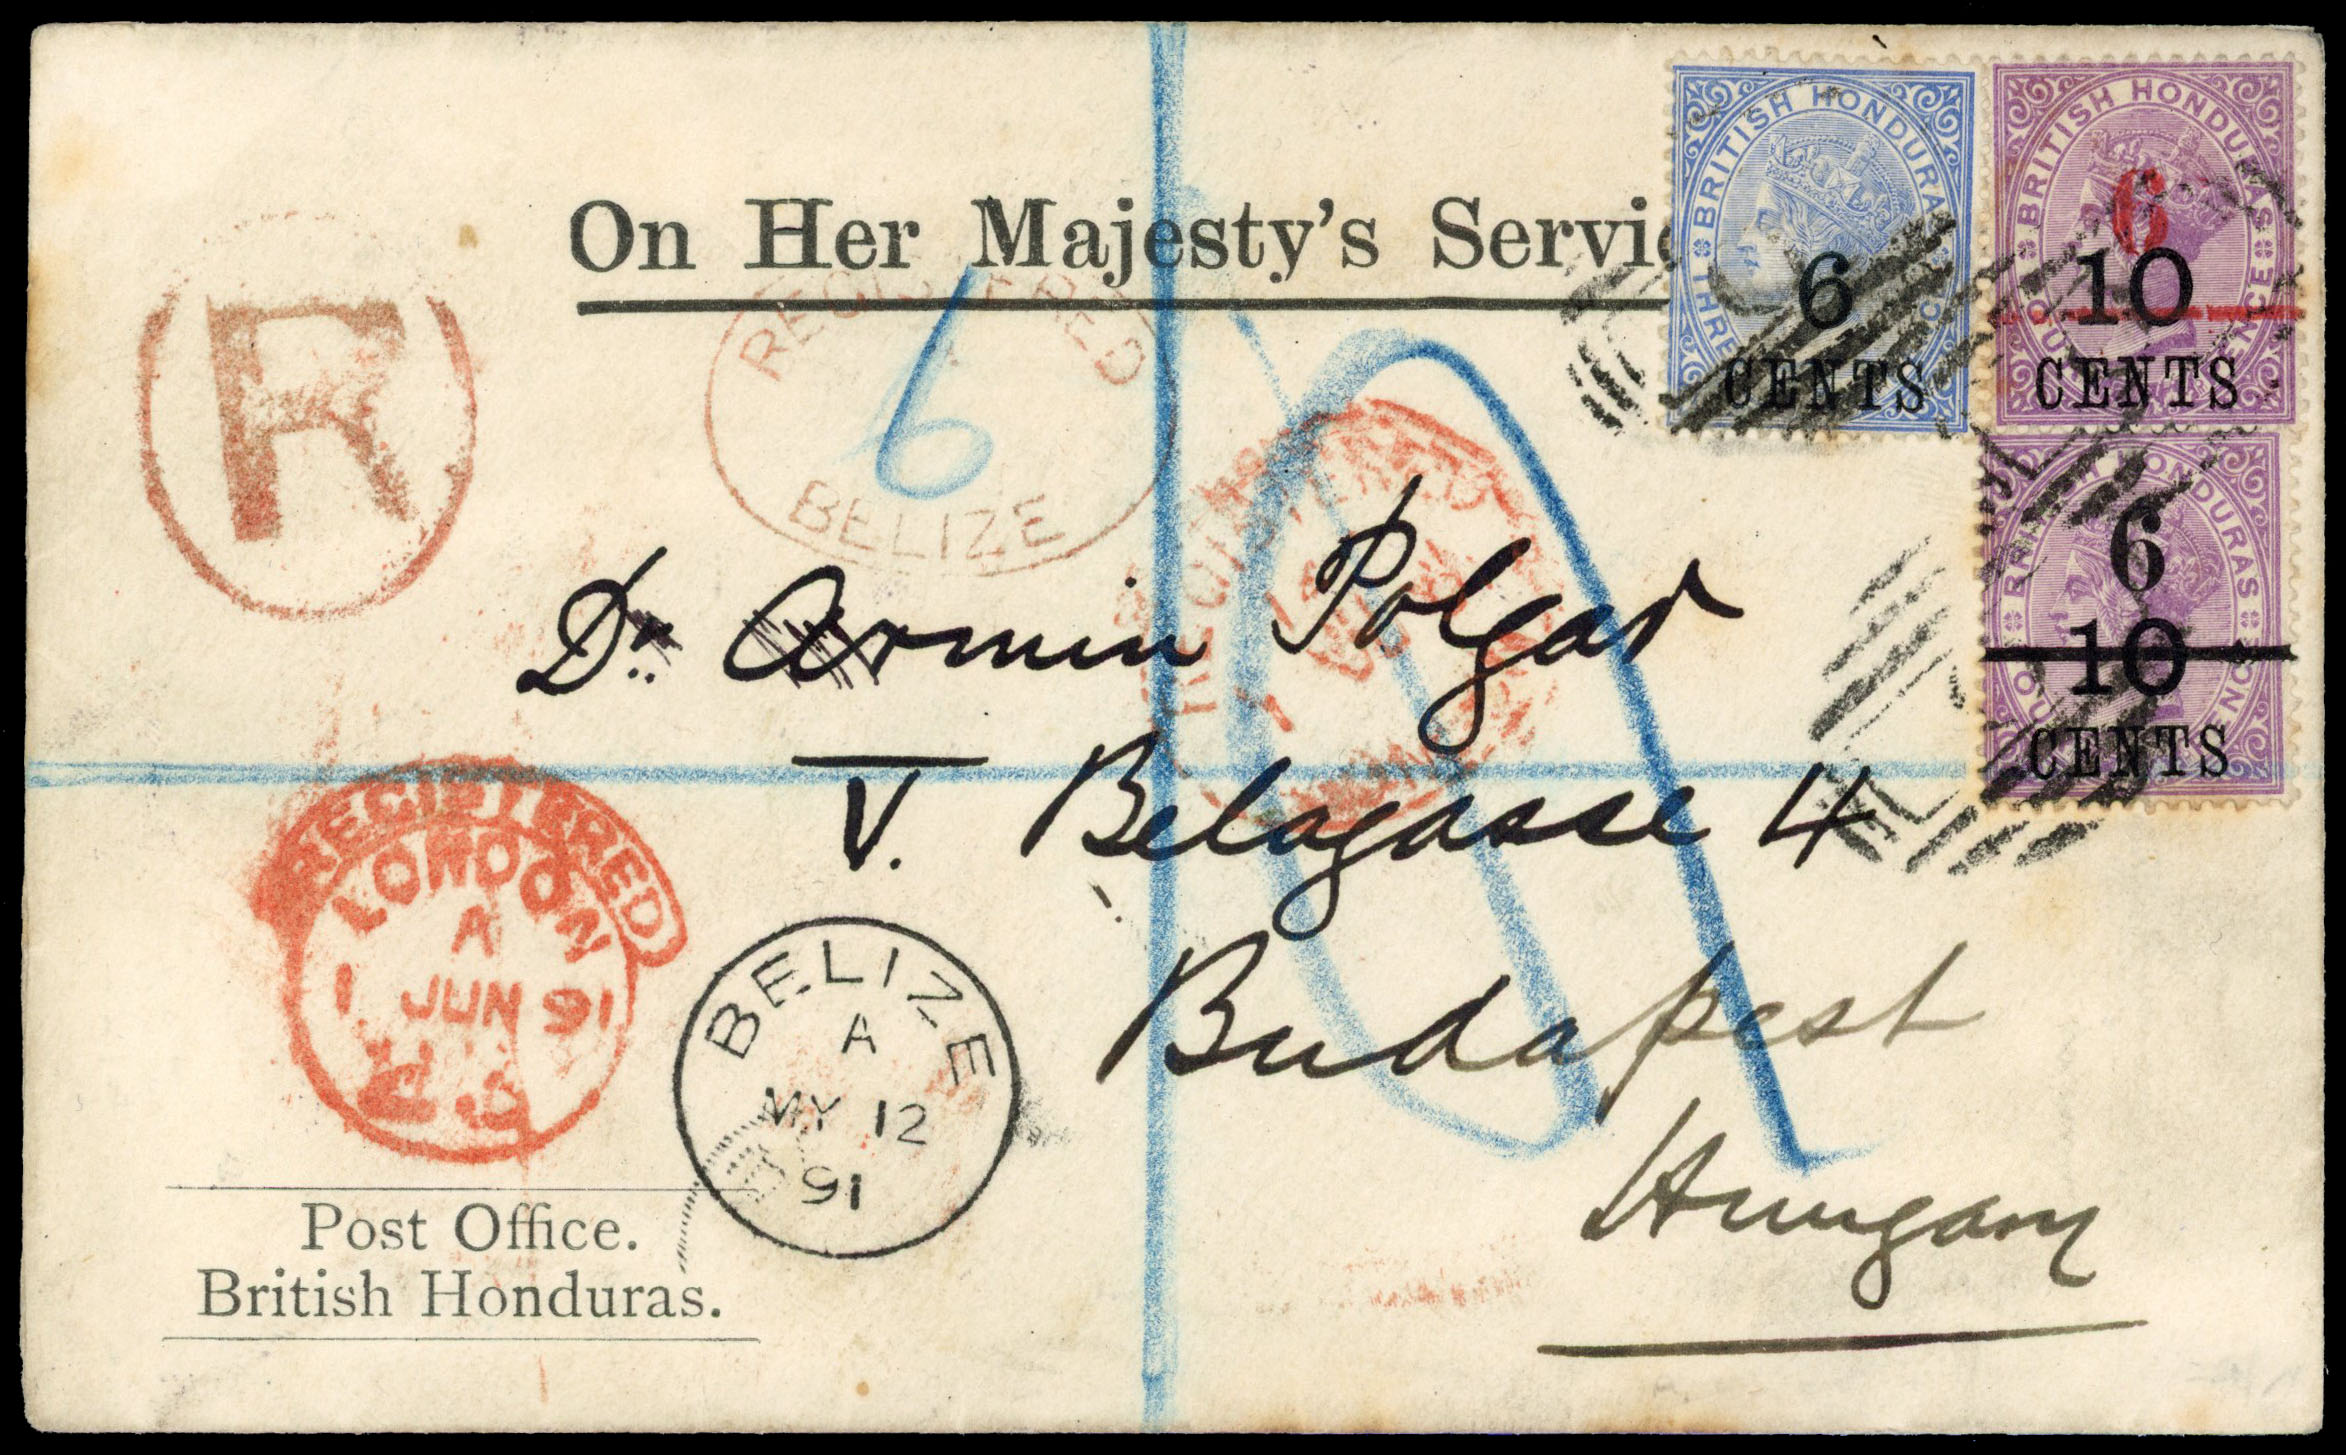 On Her Majesty's Servic
BRITISH HONDURAS
6
CENTS
BRITISH HONDURAS
6
10
CENTS
BRITISH HONDURAS
6
10
CENTS
R
REGISTERED
BELIZE
6
REGISTERED
Dr. Armin Polgar
V. Belagasse 4
Budapest
Hungary
REGISTERED
LONDON
A
1 JUN 91
BELIZE
A
MY 12
91
Post Office.
British Honduras.